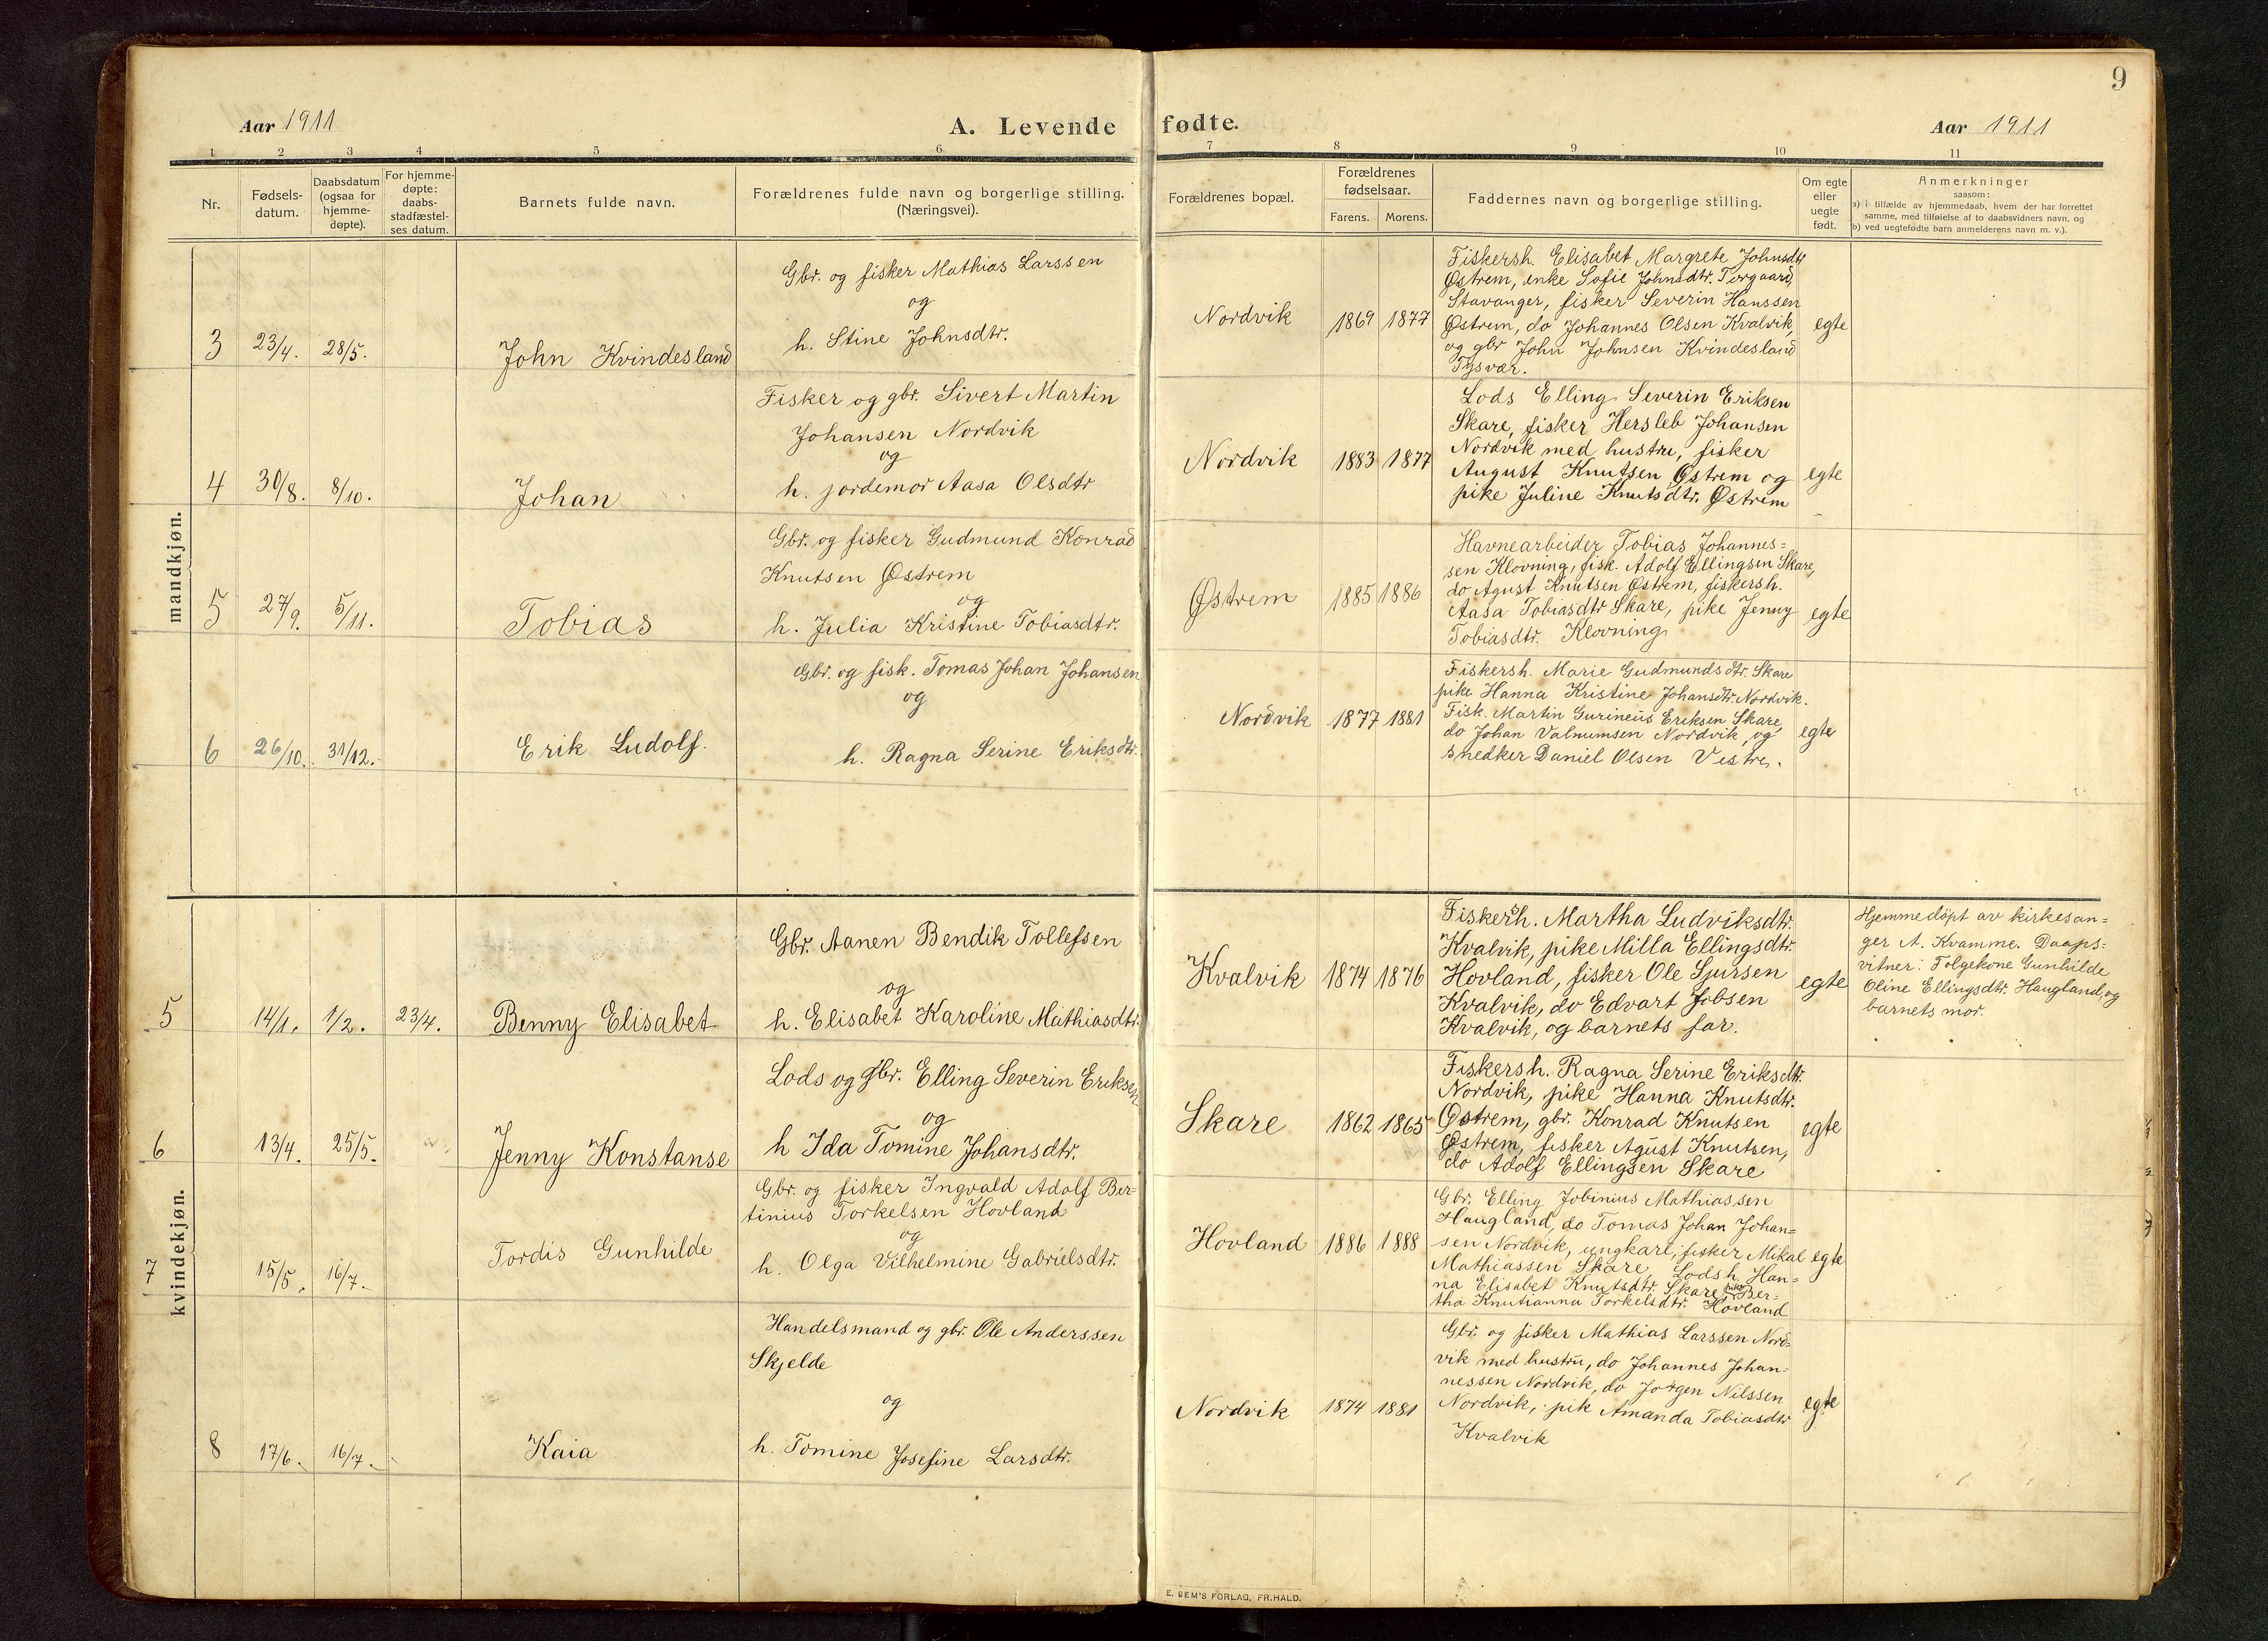 9
Aar 1911
A. Levende fødte.
Aar 1911
1 2 3 4 5 6 7 8 9 10 11
Nr.
Fødsels-
datum.
Daabsdatum
(ogsaa for
hjemme-
døpte).
For hjemme-
døpte:
daabs-
stadfæstel-
ses datum.
Barnets fulde navn.
Forældrenes fulde navn og borgerlige stilling.
(Næringsvei).
Forældrenes bopæl.
Forældrenes
fødselsaar.
Farens. Morens.
Faddernes navn og borgerlige stilling.
Om egte
eller
uegte
født.
Anmerkninger
saasom:
a) i tilfælde av hjemmedaab, hvem der har forrettet
samme, med tilføielse af to daabsvidners navn, og
b) ved uegtefødte barn anmelderens navn m. v.).
mandkjøn.
3 23/4. 28/5. John Kvindesland
Gbr. og fisker Mathias Larssen
og
h. Stine Johnsdtr.
Nordvik 1869 1877
Fiskersh. Elisabet Margrete Johnsdtr
Østrem, enke Sofie Johnsdtr. Torgaard,
Stavanger, fisker Severin Hanssen
Østrem, do Johannes Olsen Kvalvik,
og gbr John Johnsen Kvindesland
Tysvær.
egte
4 30/8. 8/10. Johan
Fisker og gbr. Sivert Martin
Johansen Nordvik
og
h. jordemor Aasa Olsdtr
Nordvik 1883 1877
Lods Elling Severin Eriksen
Skare, fisker Hersleb Johansen
Nordvik med hustru, fisker
August Knutsen Østrem og
pike Juline Knutsdtr. Østrem
egte
5 27/9. 5/11. Tobias
Gbr. og fisker Gudmund Konrad
Knutsen Østrem
og
h. Julia Kristine Tobiasdtr.
Østrem 1885 1886
Havnearbeider Tobias Johannes=
sen Klovning, fisk. Adolf Ellingsen Skare,
do Agust Knutsen Østrem, fiskersh.
Aasa Tobiasdtr Skare, pike Jenny
Tobiasdtr. Klovning
egte
6 26/10. 31/12. Erik Ludolf.
Gbr. og fisk. Tomas Johan Johansen
og
h. Ragna Serine Eriksdtr.
Nordvik 1877 1881
Fiskersh. Marie Gudmundsdtr. Skare
pike Hanna Kristine Johansdtr. Nordvik.
Fisk. Martin Gurineus Eriksen Skare,
do Johan Valnumsen Nordvik, og
snedker Daniel Olsen Vestre.
egte
kvindekjøn.
5 14/1. 1/2. 23/4. Benny Elisabet
Gbr. Aanen Bendik Tollefsen
og
h. Elisabet Karoline Mathiasdtr.
Kvalvik 1874 1876
Fiskersh. Martha Ludviksdtr.
Kvalvik, pike Milla Ellingsdtr.
Hovland, fisker Ole Sjursen
Kvalvik, do Edvart Jobsen
Kvalvik, og barnets far.
egte
Hjemmedøpt av kirkesan=
ger A. Kvamme. Daaps=
vitner: Følgekone Gunhilde
Oline Ellingsdtr. Haugland, og
barnets mor.
6 13/4. 25/5. Jenny Konstanse
Lods og gbr. Elling Severin Eriksen
og
h Ida Tomine Johansdtr.
Skare 1862 1865
Fiskersh. Ragna Serine Eriksdtr.
Nordvik, pike Hanna Knutsdtr.
Østrem, gbr. Konrad Knutsen
Østrem, fisker Agust Knutsen,
do Adolf Ellingsen Skare
egte
7 15/5. 16/7. Tordis Gunhilde
Gbr. og fisker Ingvald Adolf Ber=
tinius Torkelsen Hovland
og
h. Olga Vilhelmine Gabrielsdtr.
Hovland 1886 1888
Gbr. Elling Jobinius Mathiassen
Haugland, do Tomas Johan Johan=
sen Nordvik, ungkarl, fisker Mikal
Mathiassen Skare, Lodsh. Han=
na Elisabet Knutsdtr. Skare, pike Ber=
tha Knutianna Torkelsdtr. Hovland
egte
8 17/6. 16/7. Kaia
Handelsmand og gbr. Ole Anderssen
Skjelde
og
h. Tomine Josefine Larsdtr.
Nordvik 1874 1881
Gbr. og fisker Mathias Larssen Nord=
vik med hustru, do Johannes Johan=
nessen Nordvik, do Jørgen Nilssen
Nordvik, pik Amanda Tobiasdtr
Kvalvik
egte
E. SEM'S FORLAG, FR.HALD.